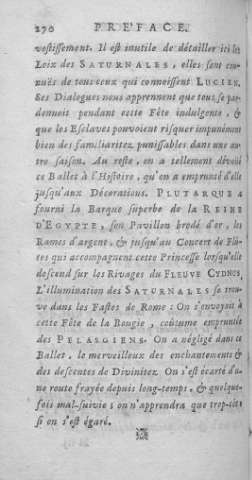 270 PREFACE.
vestissement. Il est inutile de détailler ici les
Loix des SATURNALES, elles sont con-
nuës de tous ceux qui connoissent LUCIEN.
Ses Dialogues nous apprennent que tous se par-
donnoit pendant cette Fête indulgente, &
que les Esclaves pouvoient risquer impunément
bien des familiaritez punissables dans une au-
tre saison. Au reste, on a tellement dévoüé
ce Ballet à l'Histoire, qu'on a emprunté d'elle
jusqu'aux Décorations. PLUTARQUE a
fourni la Barque superbe de la REINE
D'EGYPTE, son Pavillon brodé d'or, les
Rames d'argent, & jusqu'au Concert de Flû-
tes qui accompagnent cette Princesse lorsqu'elle
descend sur les Rivages du FLEUVE CYDNUS.
L'illumination des SATURNALES se trou-
ve dans les Fastes de Rome: On s'envoyoit à
cette Fête de la Bougie, coûtume empruntée
des PELASGIENS. On a négligé dans ce
Ballet, le merveilleux des enchantements &
des descentes de Divinitez. On s'est écarté d'u-
ne route frayée depuis long-temps, & quelque-
fois mal-suivie; on n'apprendra que trop-tôt
si on s'est égaré.